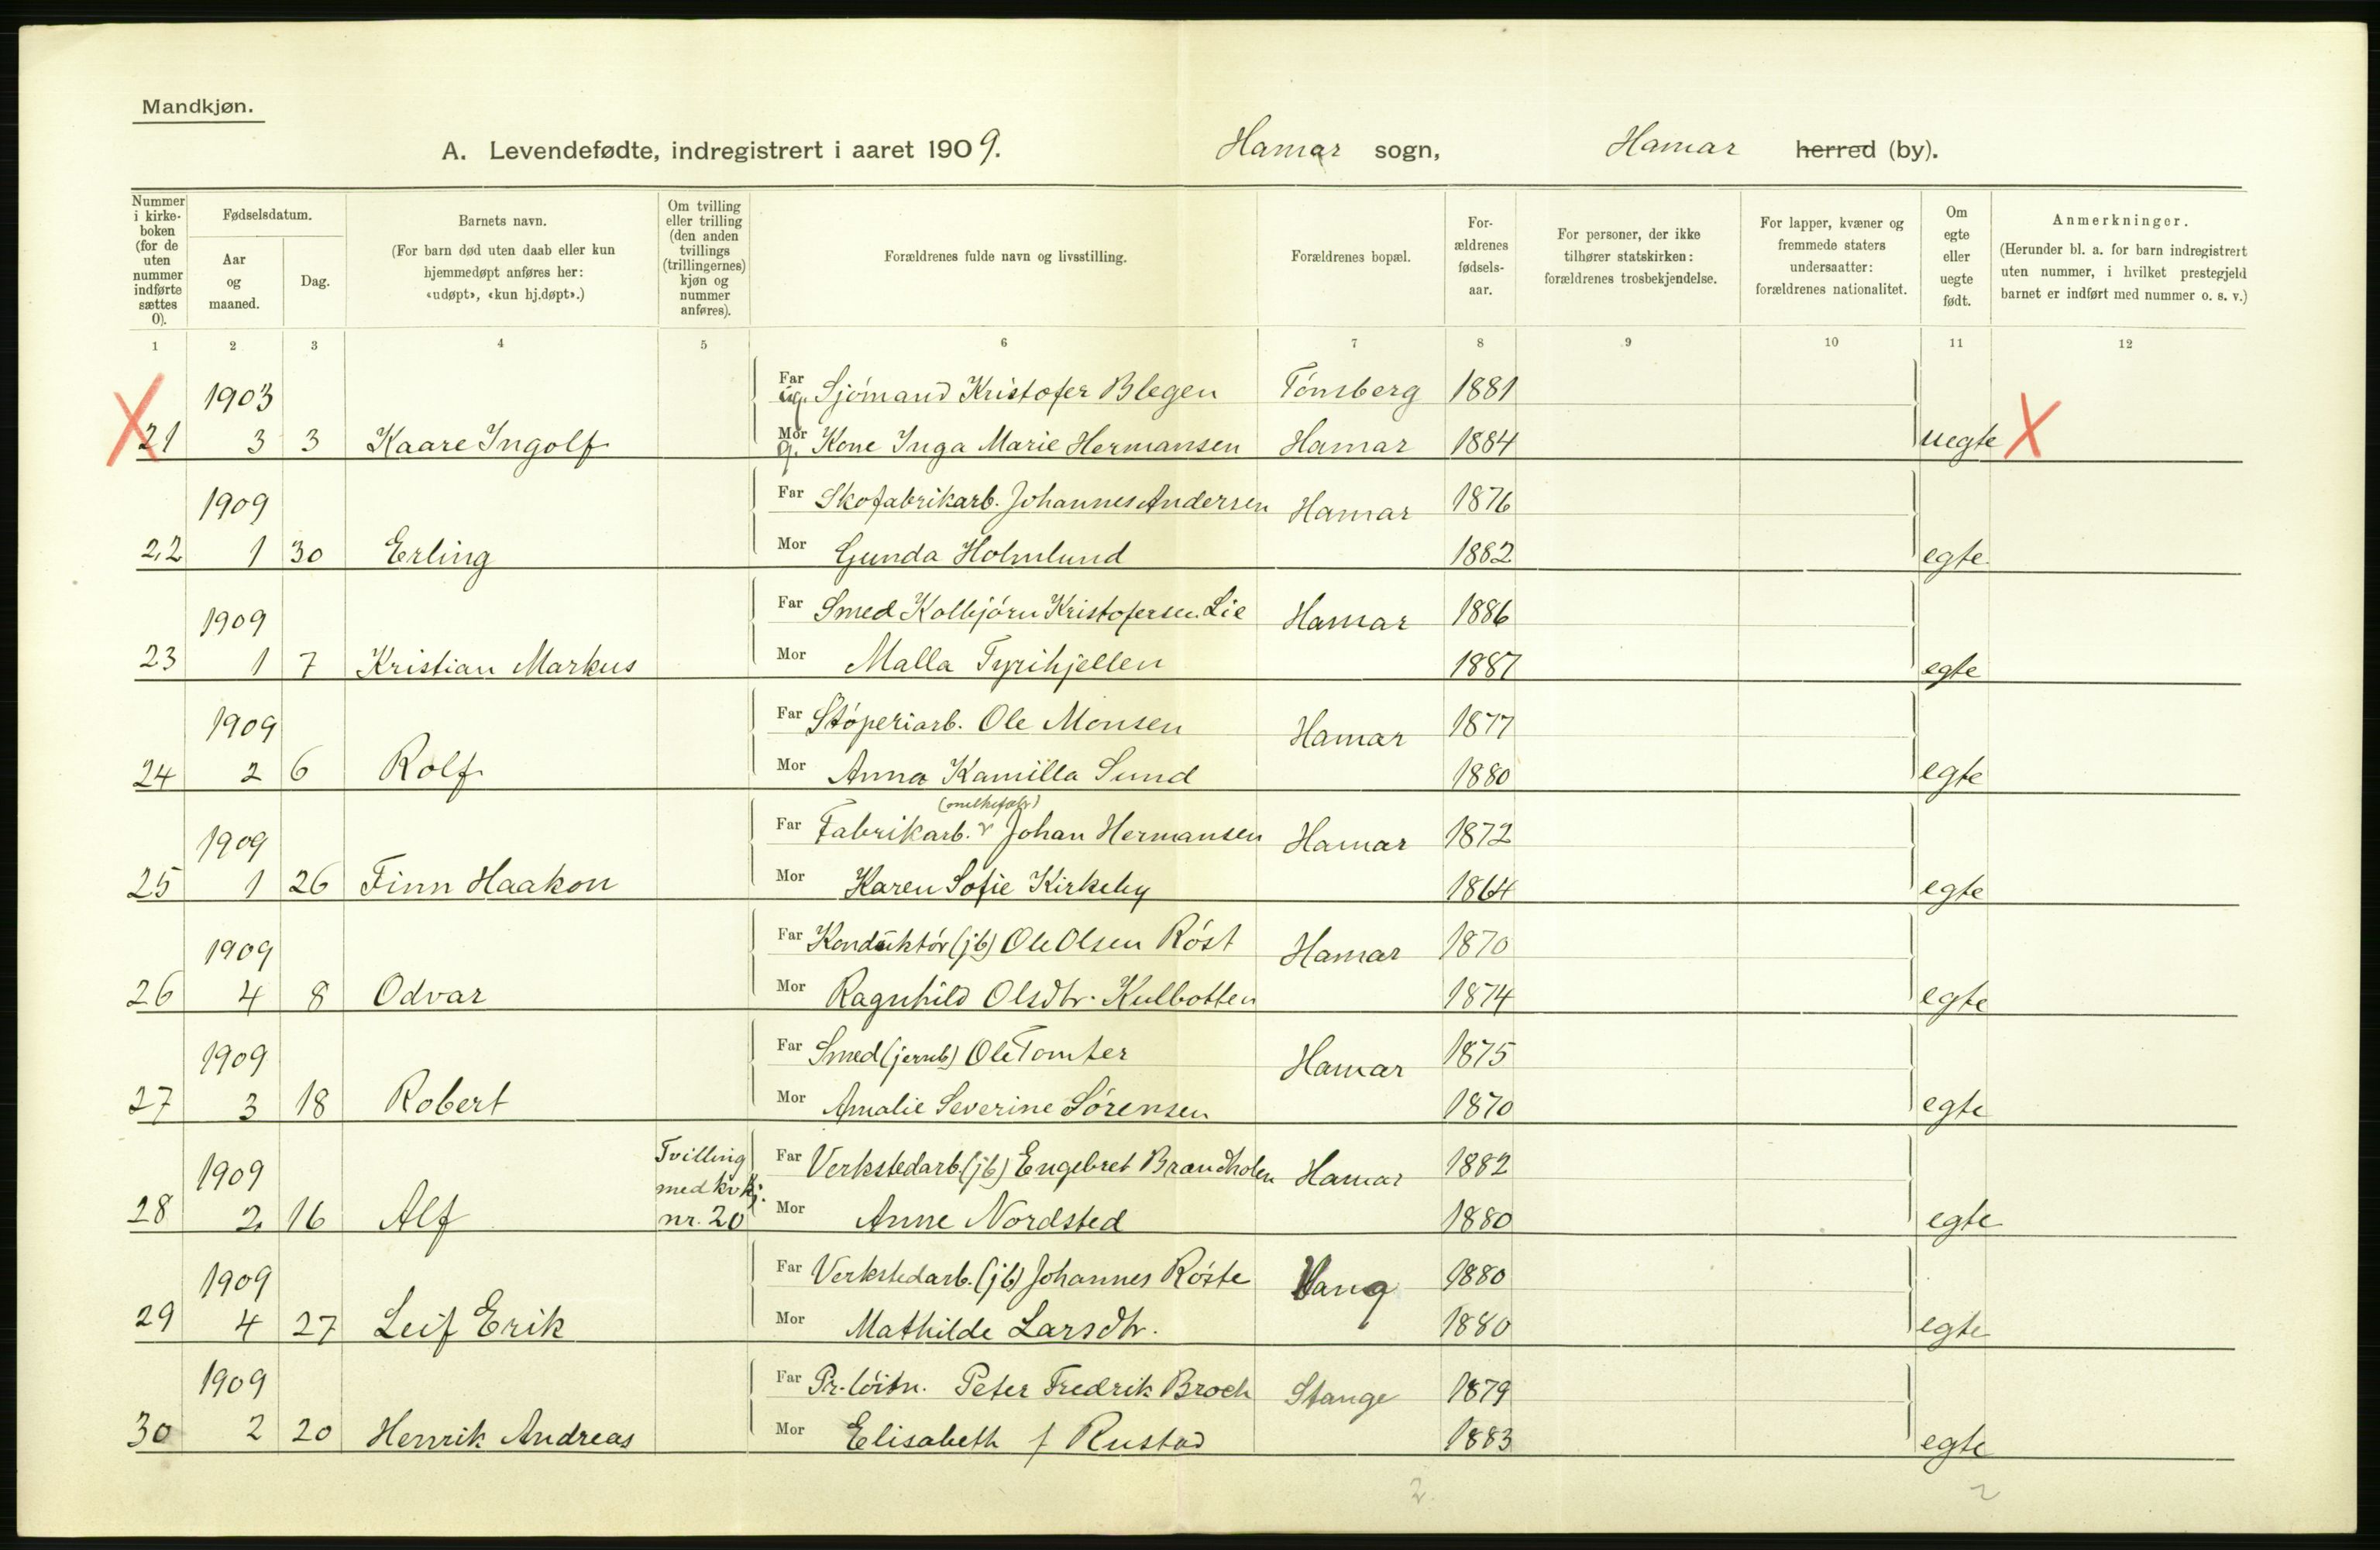 Mandkjøn.
A. Levendefødte, indregistrert i aaret 1909. Hamar sogn, Hamar herred (by).
Nummer i kirke-boken (for de uten nummer indførte sættes 0).
Fødselsdatum.
Aar og maaned.
Dag.
Barnets navn.
(For barn død uten daab eller kun hjemmedøpt anføres her: «udøpt», «kun hj.døpt».)
Om tvilling eller trilling (den anden tvillings (trillingernes) kjøn og nummer anføres).
Forældrenes fulde navn og livsstilling.
Forældrenes bopæl.
For-ældrenes fødsels-aar.
For personer, der ikke tilhører statskirken: forældrenes trosbekjendelse.
For lapper, kvæner og fremmede staters undersaatter: forældrenes nationalitet.
Om egte eller uegte født.
Anmerkninger.
(Herunder bl. a. for barn indregistrert uten nummer, i hvilket prestegjeld barnet er indført med nummer o. s. v.)
1 2 3 4 5 6 7 8 9 10 11 12
1903 Far ug. Sjømand Kristofer Blegen Tønsberg 1881
X 21 3 3 Kaare Ingolf Mor g. Kone Inga Marie Hermansen Hamar 1884 uegte X
1909 Far Skofabrikarb. Johannes Andersen Hamar 1876
22 1 30 Erling Mor Gunda Holmlund 1882 egte
1909 Far Smed Kolbjørn Kristofersen Lie Hamar 1886
23 1 7 Kristian Markus Mor Malla Tyrihjellen 1887 egte
1909 Far Støperiarb. Ole Monsen Hamar 1877
24 2 6 Rolf Mor Anna Kamilla Sund 1880 egte
1909 Far Fabrikarb. Johan Hermansen Hamar 1872
25 1 26 Finn Haakon Mor Karen Sofie Kirkeby 1864 egte
1909 Far Konduktør (jb) Ole Olsen Røst Hamar 1870
26 4 8 Odvar Mor Ragnhild Olsdtr. Kulbotten 1874 egte
1909 Far Smed (jernb) Ole Tomter Hamar 1875
27 3 18 Robert Mor Amalie Severine Sørensen 1870 egte
1909 Tvilling med kv kj. nr. 20 Far Verkstedarb. (jb) Engebret Brændholen Hamar 1882
28 2 16 Alf Mor Anne Nordsted 1880 egte
1909 Far Verkstedarb. (jb) Johannes Røste Vang 1880
29 4 27 Leif Erik Mor Mathilde Larsdtr. 1880 egte
1909 Far Pr. løitn. Peter Fredrik Broch Stange 1879
30 2 20 Henrik Andreas Mor Elisabeth f Rustad 1883 egte
2. 2